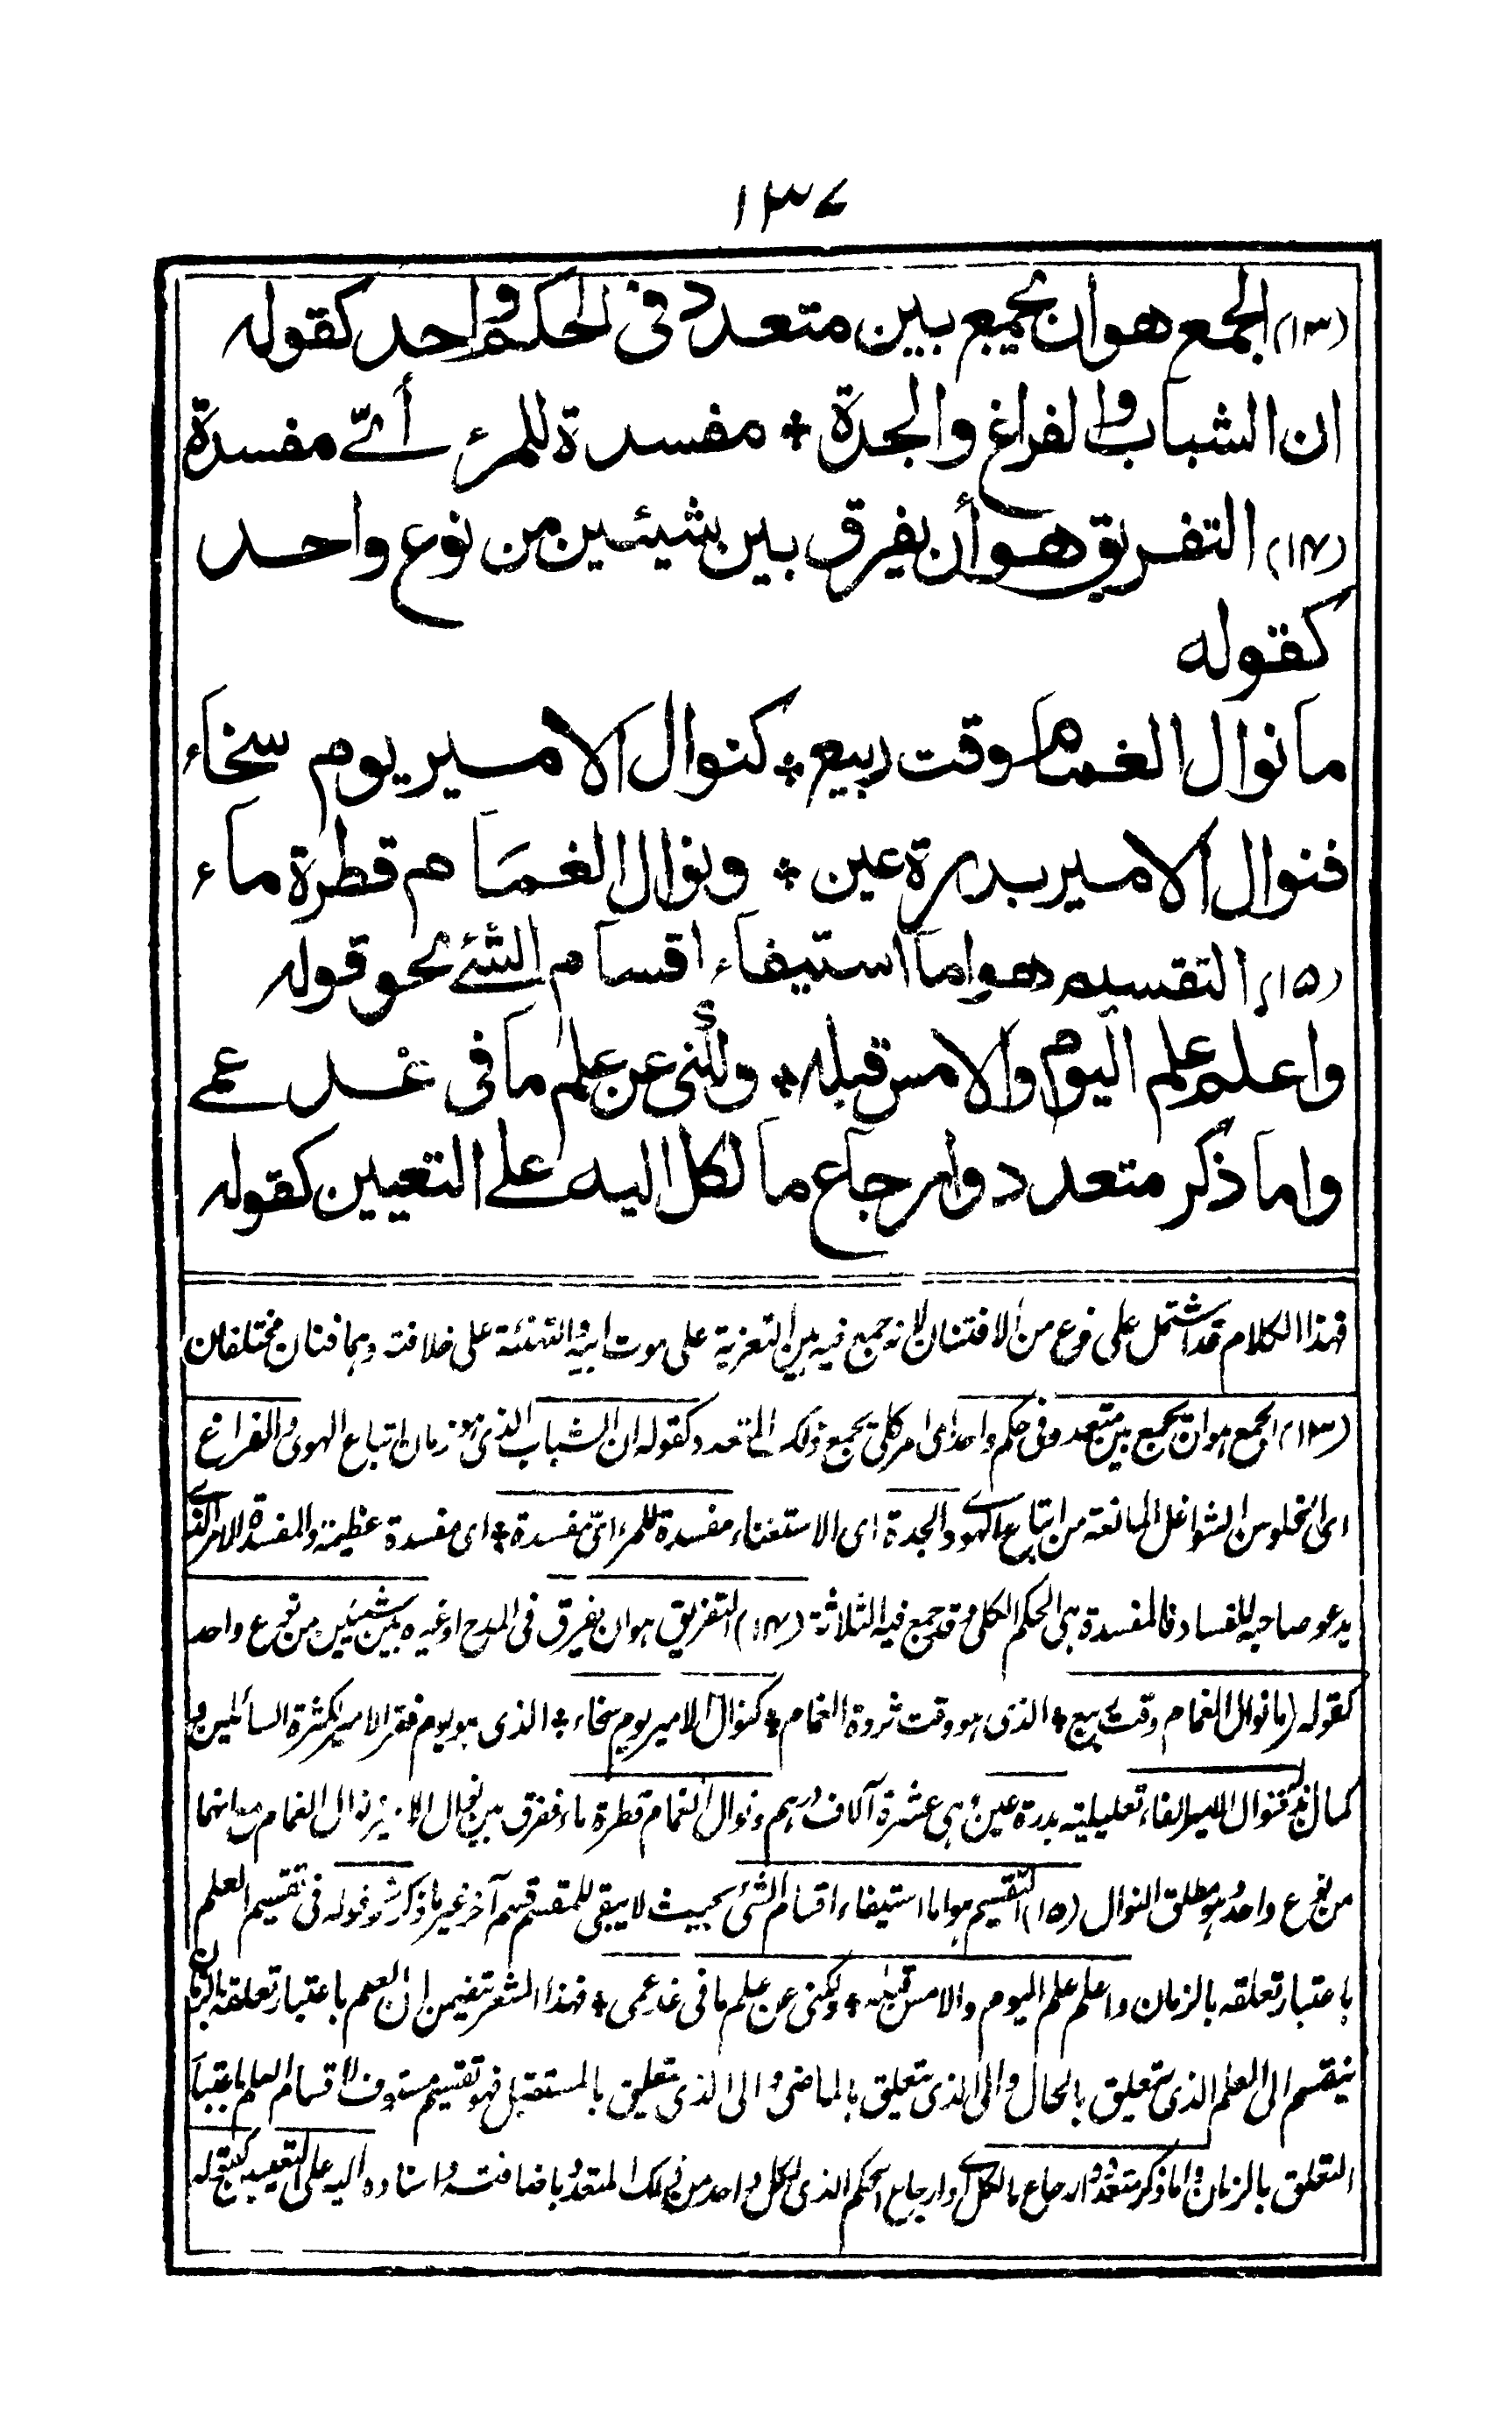 ۱۳۷
(۱۳) الجمع هو ان يجمع بين متعدد فى الحكم واحد كقوله
ان الشباب والفراغ والجدة + مفسدة للمرء أىّ مفسدة
(۱۴) التفريق هو أن يفرق بين شيئين من نوع واحد
كقوله
ما نوال الغمام وقت ربيع + كنوال الامير يوم سخاء
فنوال الامير بدرة عين + ونوال الغمام قطرة ماء
(۱۵) التقسيم هو اما استيفاء اقسام الشئ نحو قوله
واعلم علم اليوم والامس قبله + ولكننى عن علم ما فى غد عمى
واما ذكر متعدد وارجاع ما لكل اليه على التعيين كقوله
فهذا الكلام قد اشتمل على نوع من الافتنان لانه جمع فيه بين التعزية على موت ابيه والتهنئة على خلافته وهما فنان مختلفان
(۱۳) الجمع هو ان يجمع بين متعدد فى حكم واحد اى امر كلى يجمع ذلك المتعدد كقوله ان الشباب الذى هو زمان اتباع الهوى والفراغ
اى الخلو من الشواغل المانعة من اتباع الهوى والجدة اى الاستغناء مفسدة للمرء اىّ مفسدة + اى مفسدة عظيمة والمفسدة الامر الذى
يدعو صاحبه للفساد فالمفسدة هى الحكم الكلى وقد جمع فيه الثلاثة (۱۴) التفريق هو ان يفرق فى المدح او غيره بين شيئين من نوع واحد
كقوله (ما نوال الغمام وقت ربيع + الذى هو وقت ثروة الغمام + كنوال الامير يوم سخاء + الذى هو يوم فقر الامير لكثرة السائلين و
كمال بذله فنوال الامير الفاء تعليلية بدرة عين وهى عشرة آلاف درهم ونوال الغمام قطرة ماء ففرق بين نوال الامير نوال الغمام مع انهما
من نوع واحد وهو مطلق النوال (۱۵) التقسيم هو اما استيفاء اقسام الشئ بحيث لا يبقى للمقسم قسم آخر غير ما ذكر نحو قوله فى تقسيم العلم
باعتبار تعلقه بالزمان واعلم علم اليوم والامس قبله + ولكننى عن علم ما فى غد عمى + فهذا الشعر تضمن ان العلم باعتبار تعلقه بالزمان
ينقسم الى العلم الذى يتعلق بالحال والى الذى يتعلق بالماضى والى الذى يتعلق بالمستقبل فهو تقسيم مستوف لاقسام العلم باعتبار
التعلق بالزمان واما ذكر متعدد وارجاع ما لكل اى وارجاع الحكم الذى لكل واحد من ذلك المتعدد باضافته واسناده اليه على التعيين كقوله